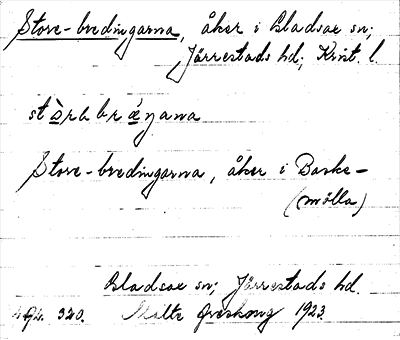 Store-bredingarna, åker i Gladsax sn;
Järrestads hd; Krist. l.
stòrabréŋana
Store-bredingarna, åker i Baske-
(mölla)
Gladsax sn; Järrestads hd.
320. Malte 1923